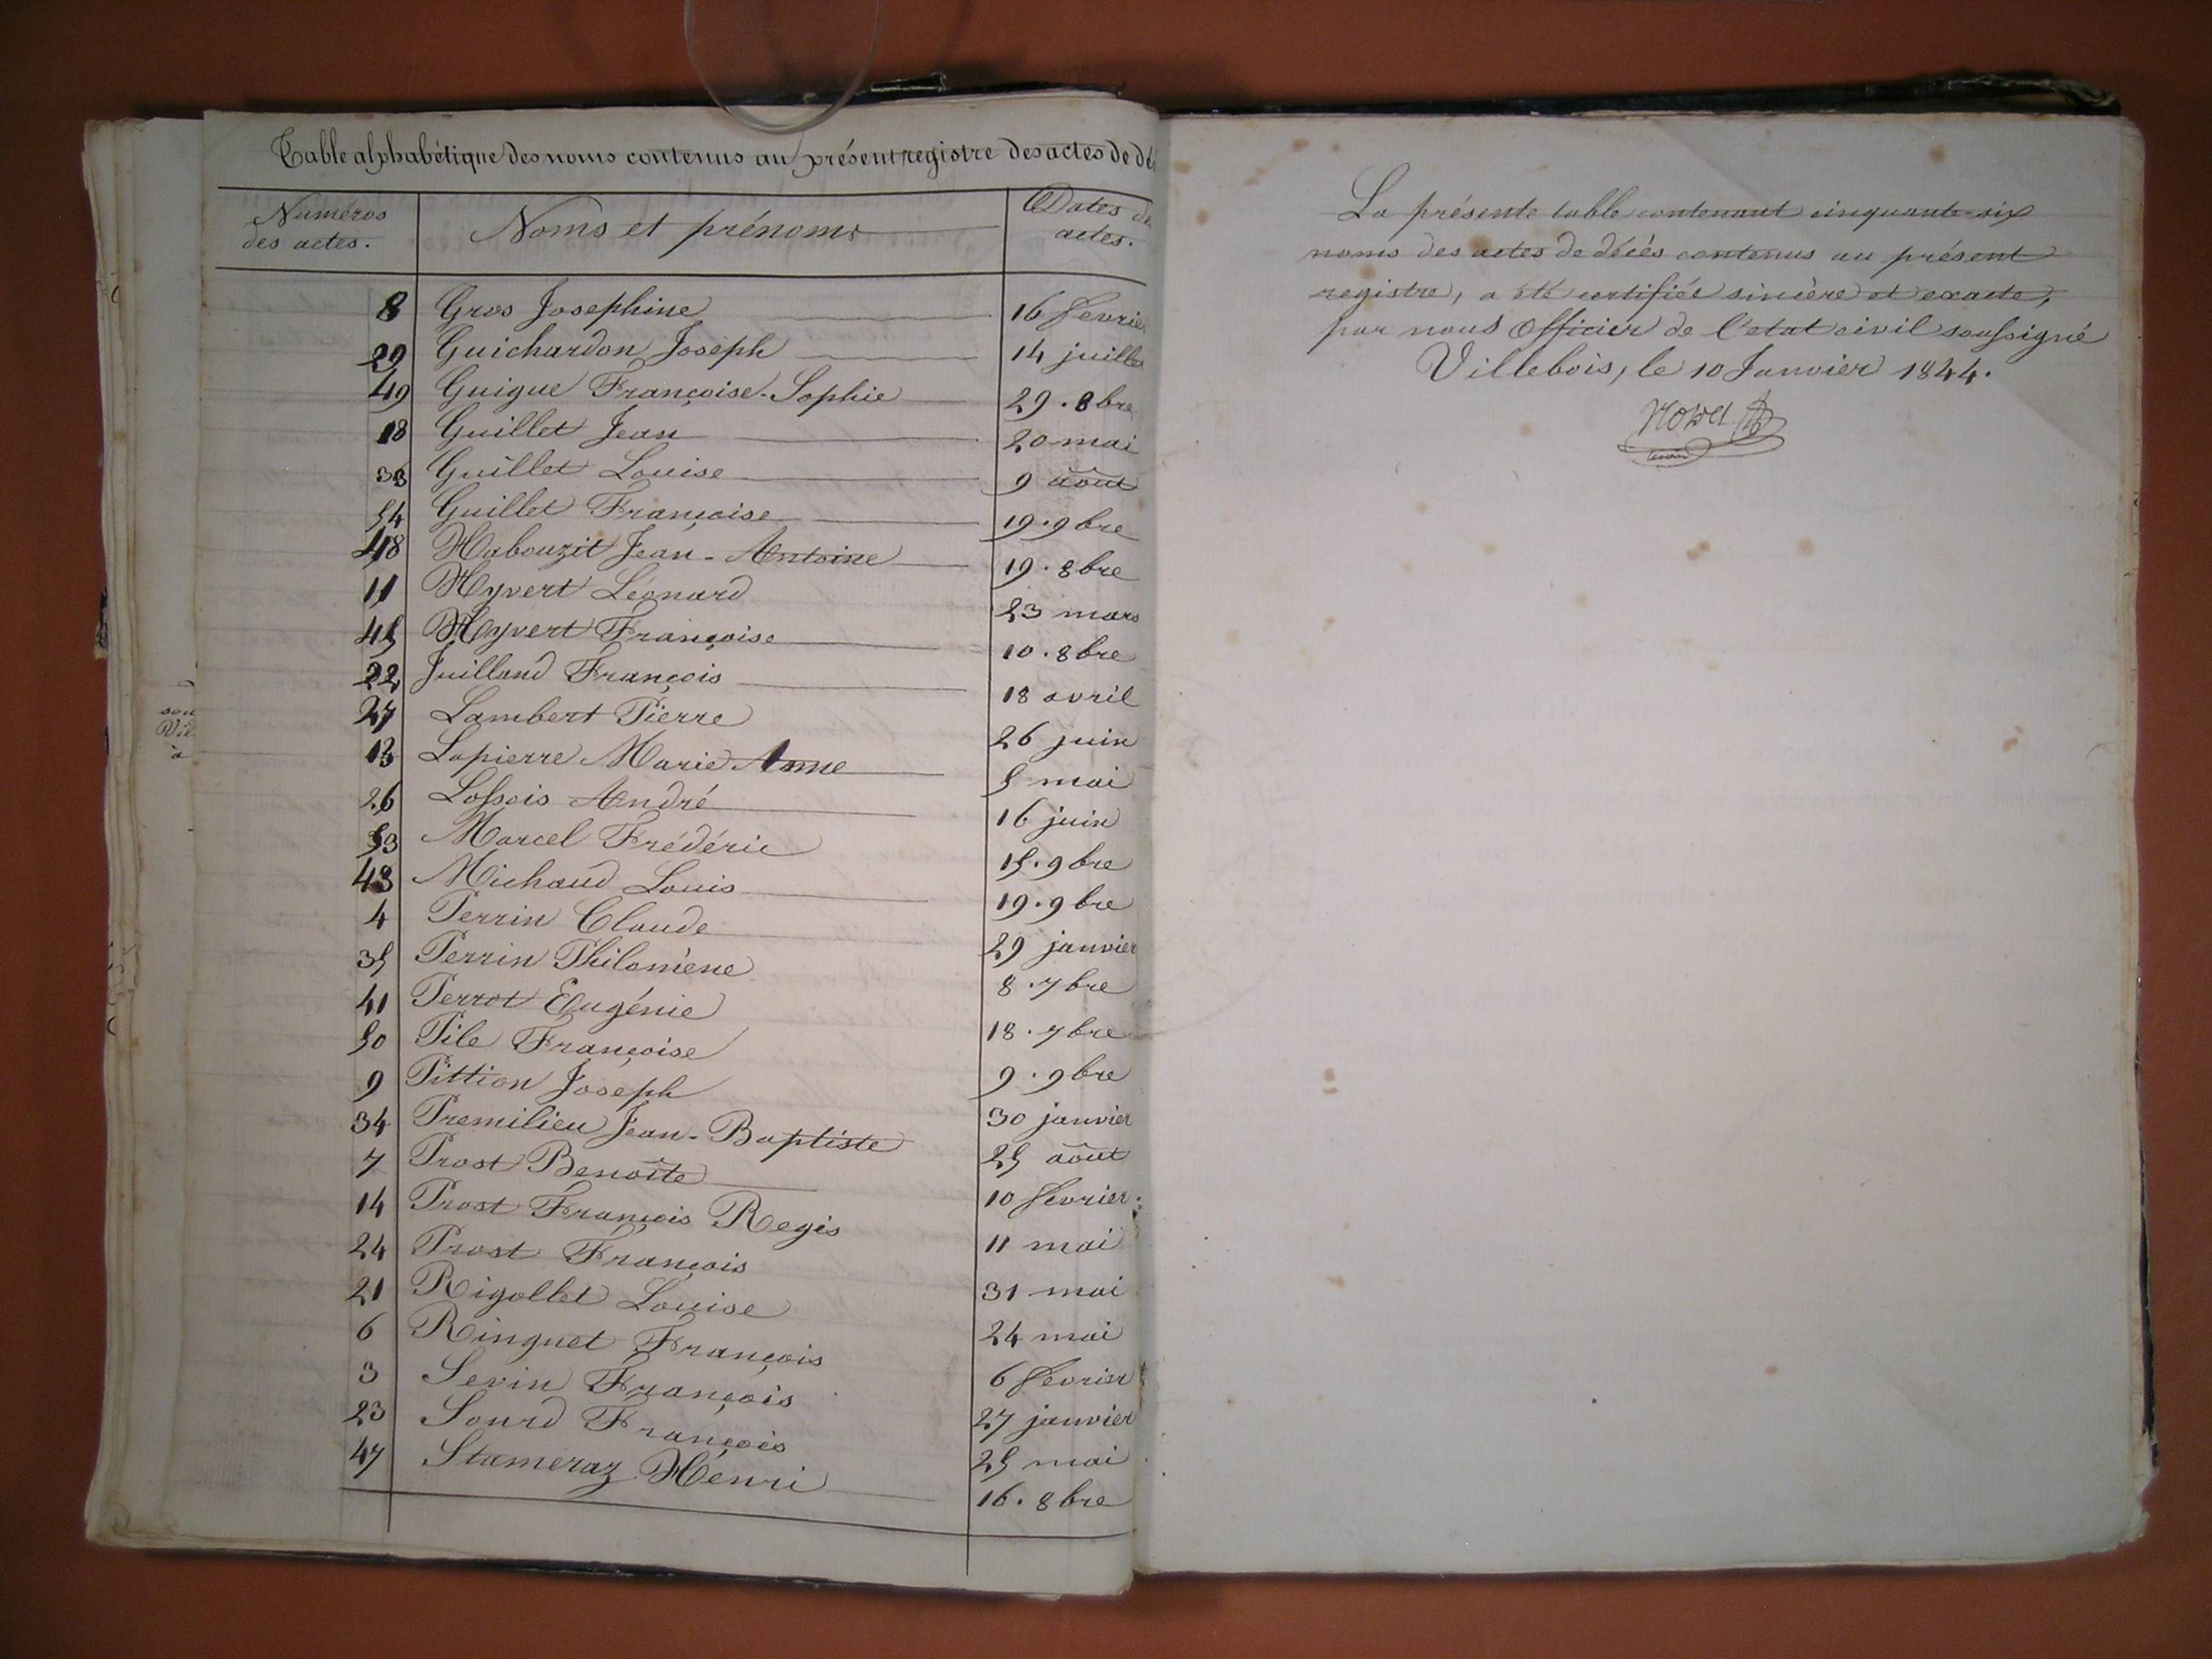 Table alphabétique des noms contenus au présent registre des actes de dé
Numéros des actes. Noms et prénoms Dates de actes.
8 Gros Josephine 16 fevrier
29 Guichardon Joseph 14 juillet
49 Guigue Françoise-Sophie 29. 8bre
18 Guillet Jean 20 mai
33 Guillet Louise 9 août
54 Guillet Françoise 19. 9bre
48 Habouzit Jean-Antoine 19. 8bre
11 Hyvert Léonard 23 mars
45 Hyvert Françoise 10. 8bre
22 Juilland François 18 avril
27 Lambert Pierre 26 juin
13 Lapierre Marie Anne 5 mai
26 Lassois André 16 juin
53 Marcel Frédéric 15. 9bre
Michaud Louis 19. 9bre
4 Perrin Claude 29 janvier
35 Perrin Philomène 8. 7bre
41 Perrot Eugénie 18. 7bre
50 Pile Françoise 9. 9bre
9 Pittion Joseph 30 janvier
34 Premilieu Jean-Baptiste 25 août
7 Prost Benoîte 10 fevrier
14 Prost François Regis 11 mai
24 Prost François 31 mai
21 Rigollet Louise 24 mai
6 Ringuet François 6 fevrier
3 Sevin François 27 janvier
23 Sourd François 25 mai
47 Stameraz Henri 16. 8bre
sou
Vil
à
La présente table contenant cinquante-six
noms des actes de décès contenus au présent
registre, a été certifiée sincère et exacte,
par nous Officier de l'etat civil soussigné
Villebois, le 10 Janvier 1844.